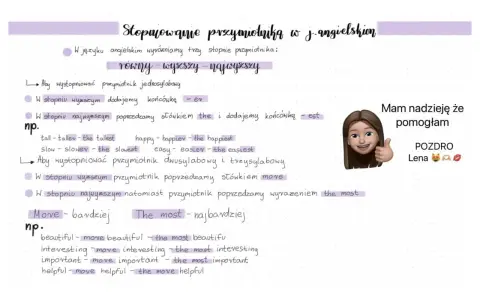 Stopniowanie przymiotnika w j. angielskim
W języku angielskim wyróżniamy trzy stopnie przymiotnika:
równy - wyższy - najwyższy
Aby wystopniować przymiotnik jednosylabowy
W stopniu wyższym dodajemy końcówkę - er
W stopniu najwyższym poprzedzamy słówkiem the i dodajemy końcówkę - est
np.
tall - taller - the tallest happy - happier - the happiest
slow - slower - the slowest easy - easier - the easiest
Aby wystopniować przymiotnik dwusylabowy i trzysylabowy
W stopniu wyższym przymiotnik poprzedzamy słówkiem more
W stopniu najwyższym natomiast przymiotnik poprzedzamy wyrażeniem the most
More - bardziej The most - najbardziej
np.
beautiful - more beautiful - the most beautifu
interesting - more interesting - the most interesting
important - more important - the most important
helpful - more helpful - the more helpful
Mam nadzieję że
pomogłam
POZDRO
Lena 😼🫶🏻💋